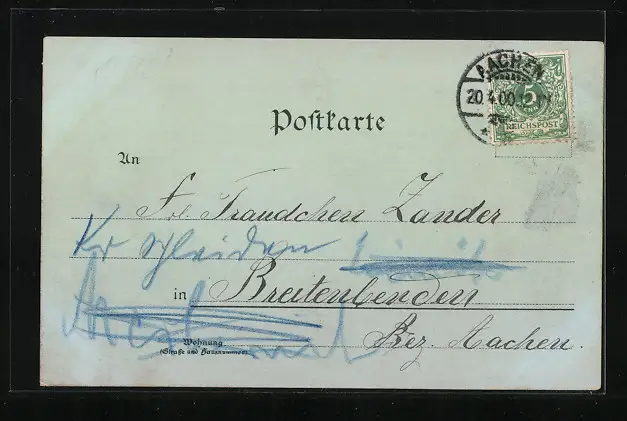 AACHEN
20.4.00.12
5
REICHSPOST
Postkarte
An
Frl. Traudchen Zander
Kr Schleiden
in Breitenbenden
Bez. Aachen.
Wohnung
(Straße und Hausnummer)